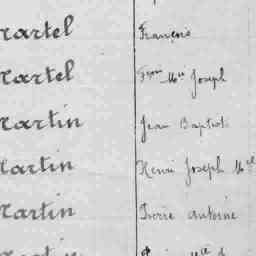 Martel François
Martel Fçois Mie Joseph
Martin Jean Baptiste
Martin Henri Joseph Mie
Martin Pierre Antoine